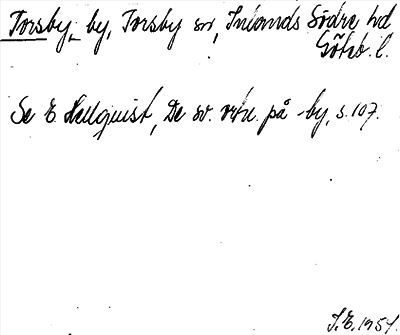 Torsby, by, Torsby sn, Inlands Södre hd
Göteb. l.
Se E. Hellquist, De sv. ortn. på -by, s. 107.
I.E. 1954.